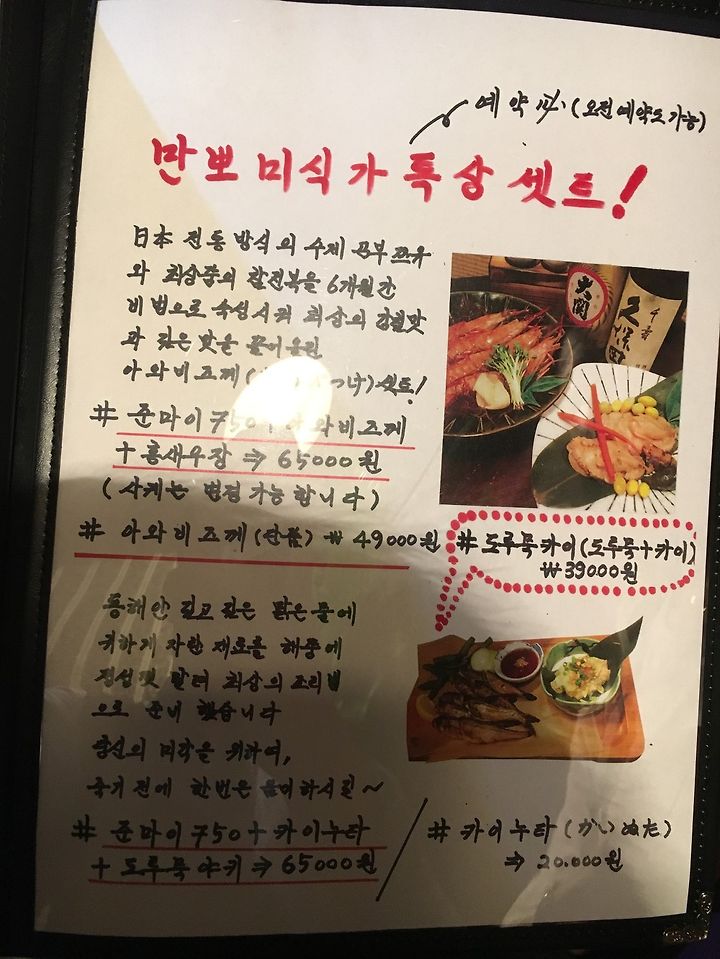 예약必 (오전예약도가능)
만뽀 미식가 특상 셋트!
日本 전통 방식의 수제 곤부쯔유
와 최상품의 활전복을 6개월간
비법으로 숙성시켜 최상의 감칠맛
과 깊은 맛을 끌어올린
아와비즈께 ( づけ) 셋트!
# 준마이 750 + 아와비즈께
+ 홍새우장 ⇒ 65000원
(사케는 변경가능합니다)
# 아와비즈께 (단품) ₩ 49000원
# 도루묵카이 (도루묵+카이)
₩39000원
大関
千寿
久保田
동해안 깊고 깊은 맑은 물에
귀하게 자란 재료를
정성껏 말려 최상의 조리법
으로 준비 했습니다
당신의 미각을 위하여,
죽기 전에 한번은 음미하시길~
# 준마이 750 + 카이누타
+ 도루묵야키 ⇒ 65000원
# 카이누타 (かいぬた)
⇒ 20.000원